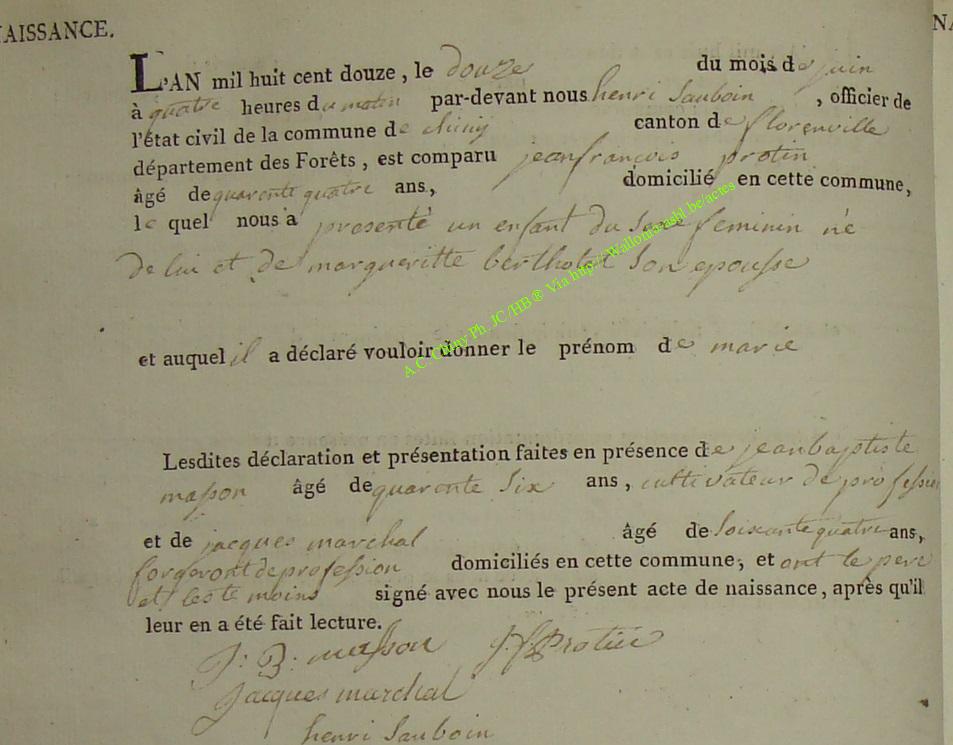 NAISSANCE.
NA
L'AN mil huit cent douze, le douze du mois de juin
à quatre heures du matin par-devant nous henri Sauboin, officier de
l'état civil de la commune de chiny canton de florenville
département des Forêts, est comparu jeanfrançois protin
âgé de quarente quatre ans, domicilié en cette commune,
le quel nous a presenté un enfant du Sexe feminin né
de lui et de margueritte bertholet Son epousse
et auquel il a déclaré vouloir donner le prénom de marie
Lesdites déclaration et présentation faites en présence de jeanbaptiste
masson âgé de quarente Six ans, cultivateur de profession
et de jacques marchal âgé de Soixante quatre ans,
forgeront de profession domiciliés en cette commune, et ont le pere
et les te moins signé avec nous le présent acte de naissance, après qu'il
leur en a été fait lecture.
J: B: masson J f Protin
Jacques marchal
henri Sauboin
A.C. Chiny Ph. JC /HB ® Via http://Wallonia-asbl.be/actes